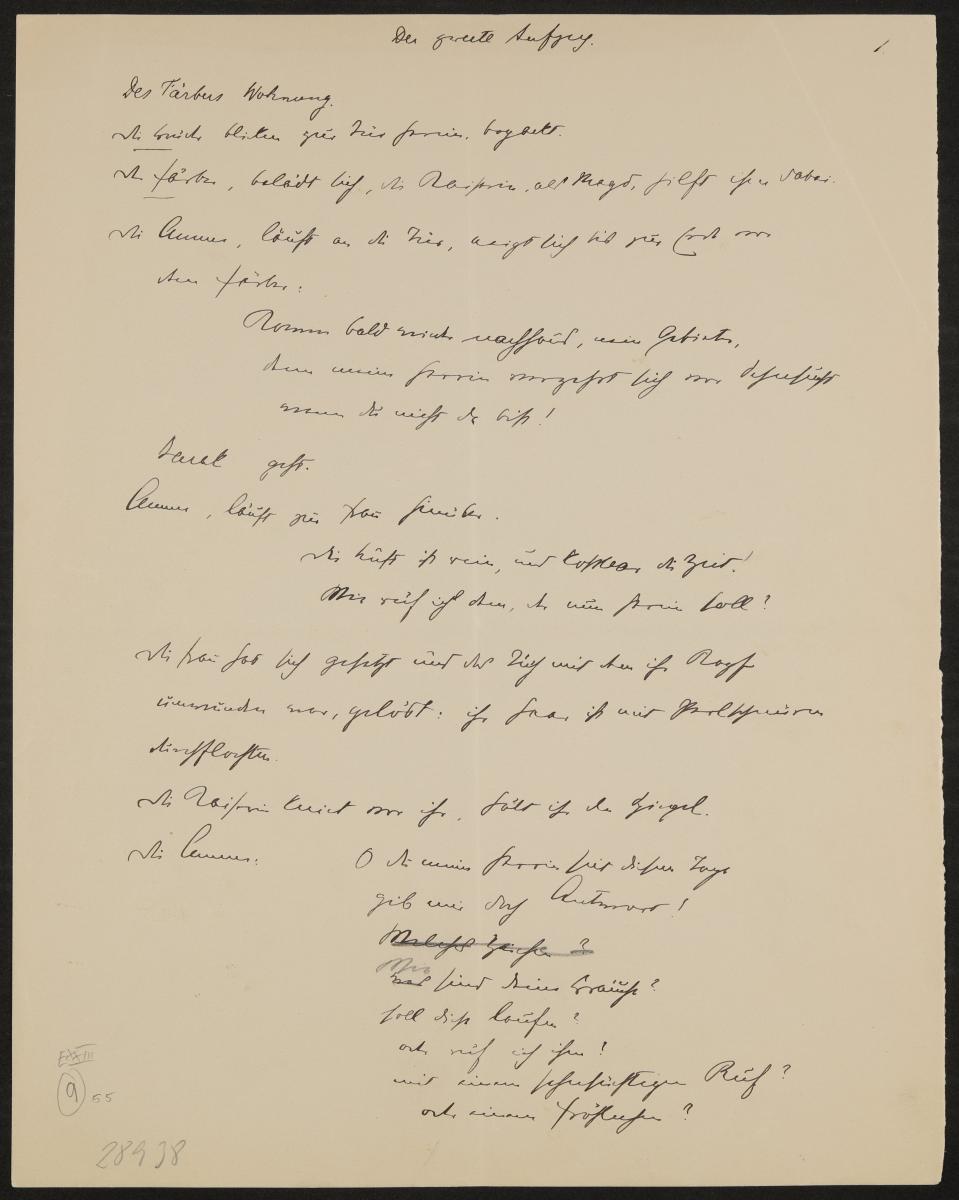 Der zweite Aufzug.
1.
Des Färbers Wohnung.
die Brüder blicken zur Tür herein, bepackt.
der Färber, belädt sich, die Kaiserin, als Magd, hilft ihm dabei.
die Amme, läuft an die Tür, neigt sich bis zur Erde vor
dem Färber:
Komm bald wieder nachhaus, mein Gebieter,
denn meine Herrin verzehrt sich vor Sehnsucht
wenn du nicht da bist!
Barak geht.
Amme, läuft zur Frau hinüber.
die Luft ist rein, und kostbar die Zeit!
Wie ruf ich den, der nun herein soll?
die Frau hat sich gesetzt und das Tuch mit dem ihr Kopf
umwunden war, gelöst: ihr Haar ist mit Perlschnüren
durchflochten.
die Kaiserin kniet vor ihr, hält ihr den Spiegel.
die Amme: O du meine Herrin seit diesem Tage
gib mir doch Antwort!
Welches Zeichen?
Wie
was sind deine Bräuche?
soll diese laufen?
oder ruf ich ihn?
mit einem sehnsüchtigen Ruf?
oder einem fröhlichen?
9 55
28938